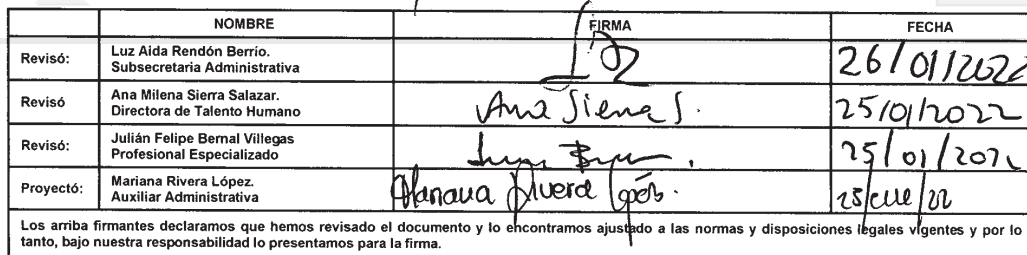 NOMBRE FIRMA FECHA
Revisó: Luz Aida Rendón Berrio.
Subsecretaria Administrativa 26/01/2022
Revisó Ana Milena Sierra Salazar.
Directora de Talento Humano Ana Sierra S. 25/01/2022
Revisó: Julián Felipe Bernal Villegas
Profesional Especializado 25/01/2022
Proyectó: Mariana Rivera López.
Auxiliar Administrativa Mariana Rivera López. 25/ene/22
Los arriba firmantes declaramos que hemos revisado el documento y lo encontramos ajustado a las normas y disposiciones legales vigentes y por lo
tanto, bajo nuestra responsabilidad lo presentamos para la firma.